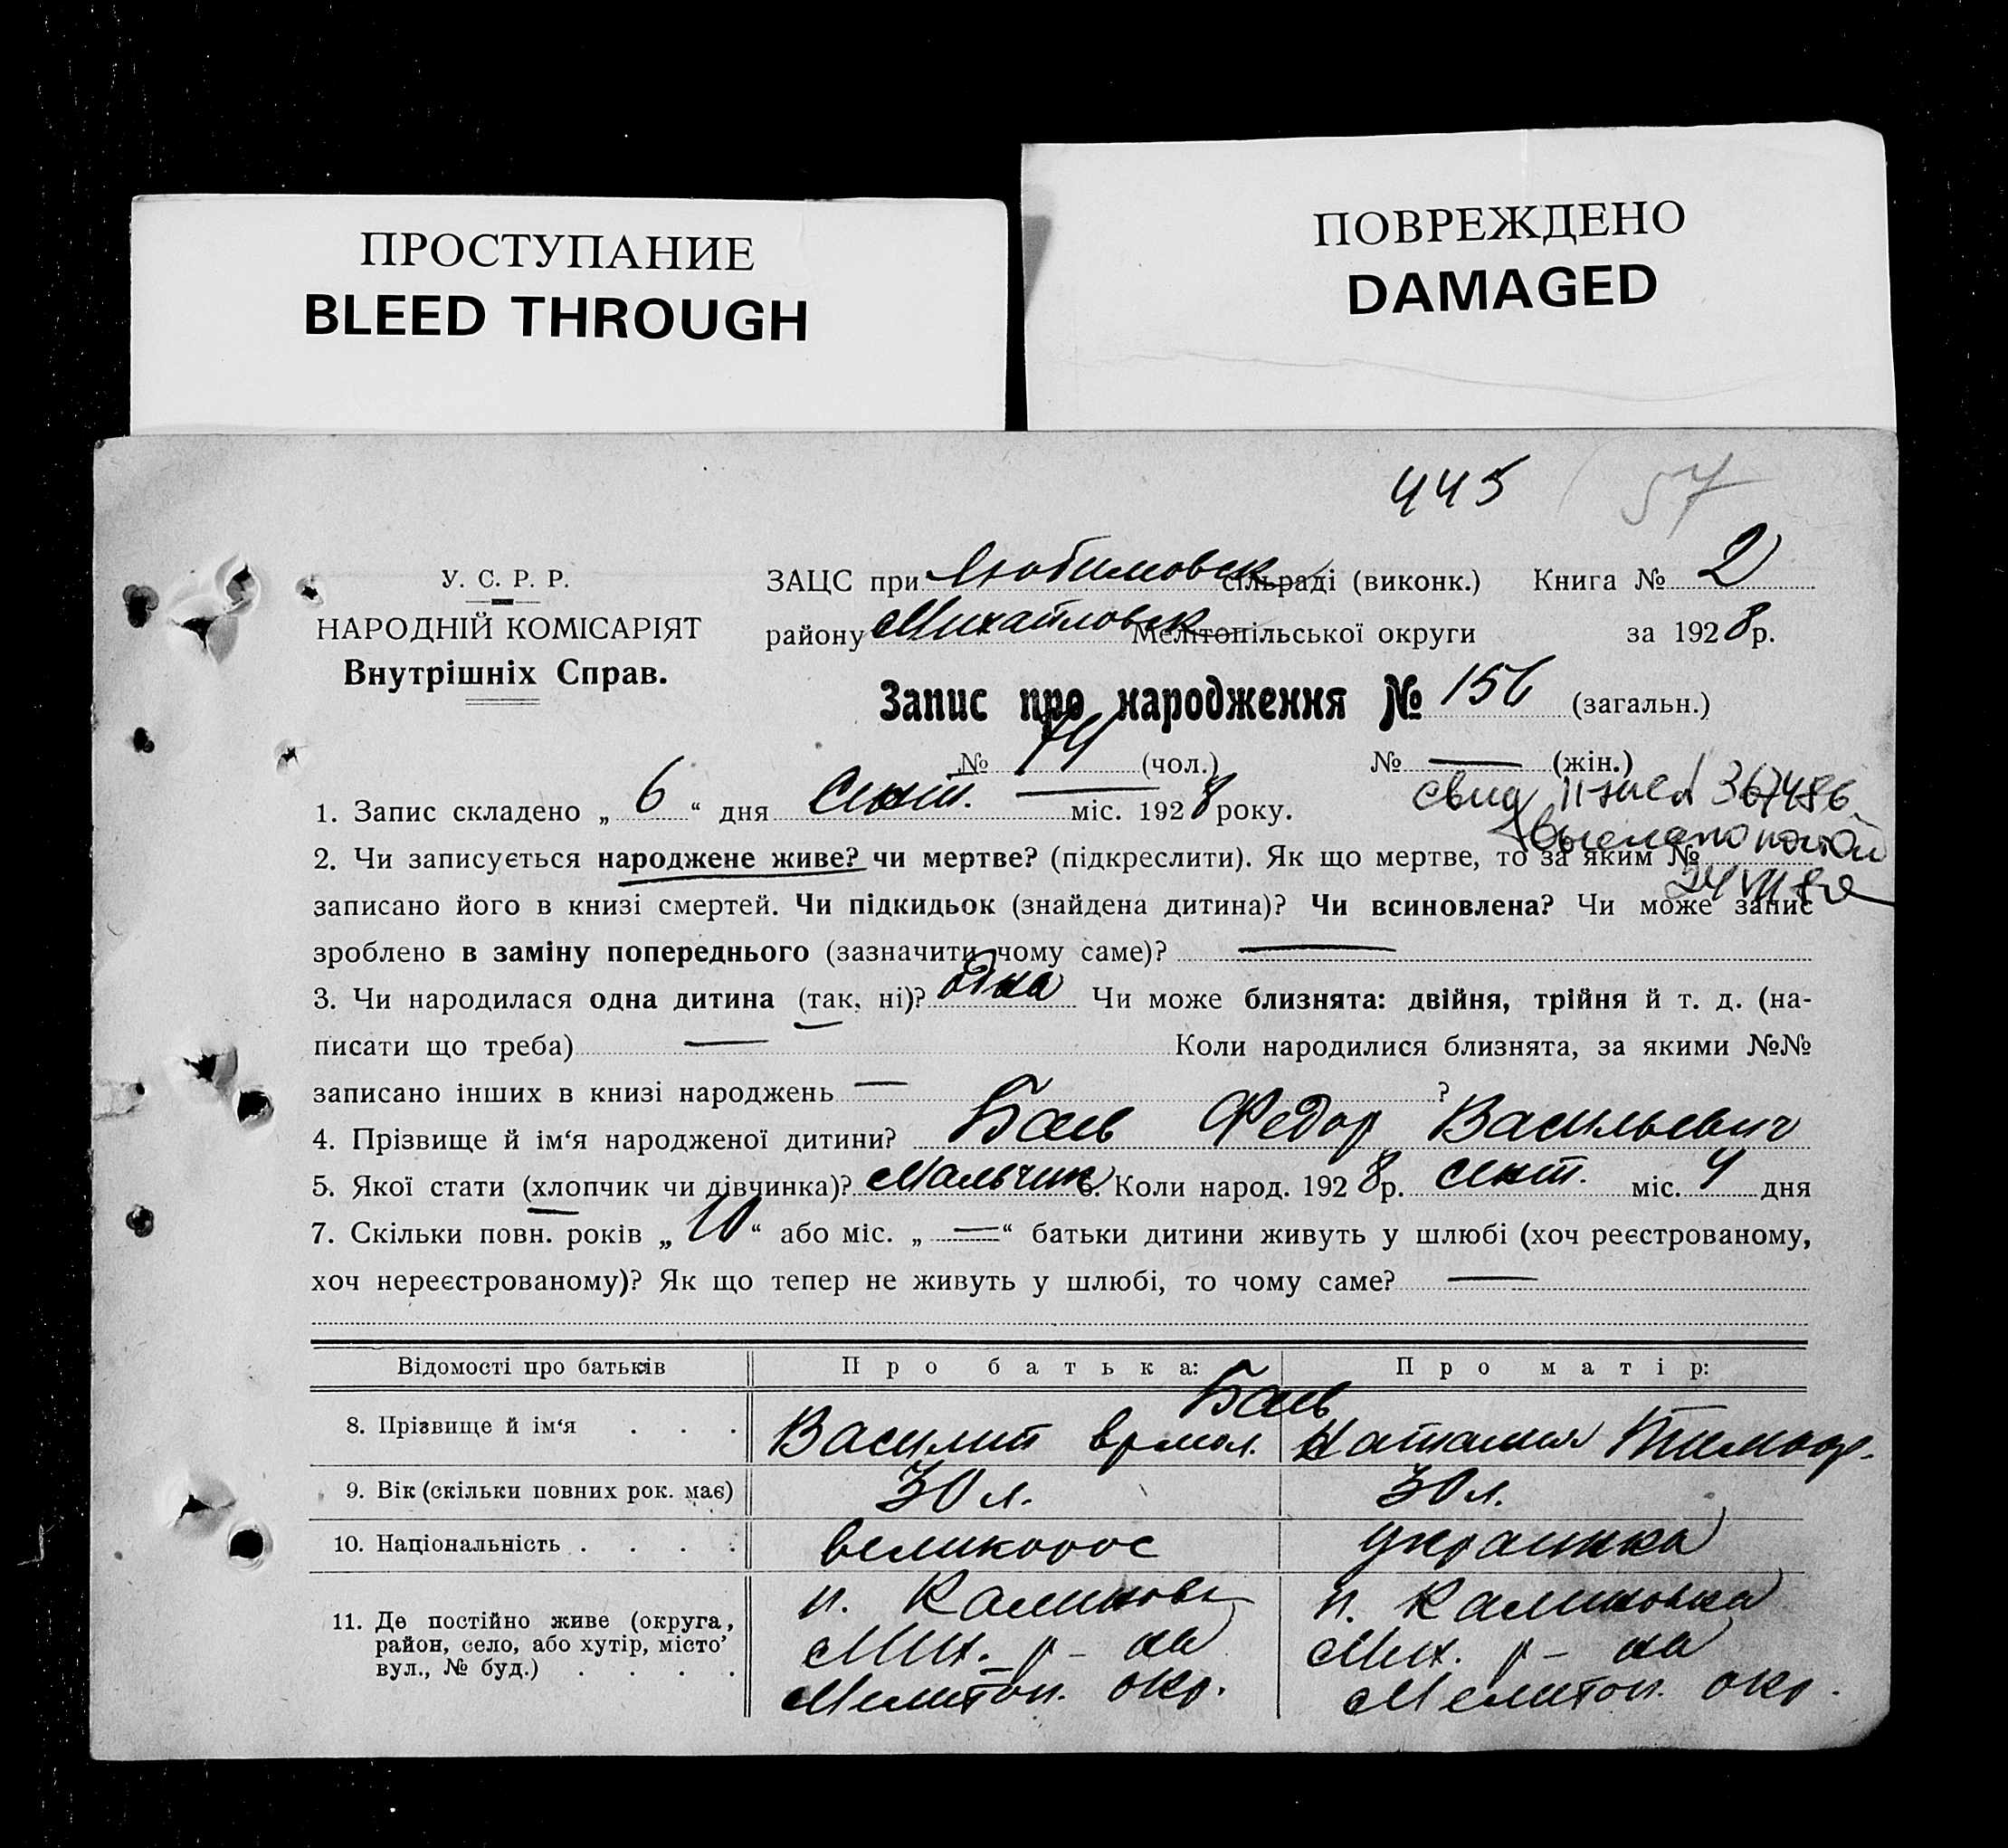 ПРОСТУПАНИЕ
BLEED THROUGH
ПОВРЕЖДЕНО
DAMAGED
445 57
У. С. Р. Р.
НАРОДНІЙ КОМІСАРІЯТ
Внутрішніх Справ.
ЗАЦС при Любимовск сільраді (виконк.) Книга № 2
району Михайловск Мелітопільської округи за 1928 р.
Запис про народження № 156 (загальн.)
№ 74 (чол.) № — (жін.)
свид 367486
1. Запис складено „ 6 “ дня Сент. міс. 1928 року.
выслано
2. Чи записується народжене живе? чи мертве? (підкреслити). Як що мертве, то за яким №
24 VII
записано його в книзі смертей. Чи підкидьок (знайдена дитина)? Чи всиновлена? Чи може запис
зроблено в заміну попереднього (зазначити чому саме)? —
3. Чи народилася одна дитина (так, ні)? одна Чи може близнята: двійня, трійня й т. д. (на-
писати що треба) — Коли народилися близнята, за якими №№
записано інших в книзі народжень — ?
4. Прізвище й ім‘я народженої дитини? Баев Федор Васильевич
5. Якої стати (хлопчик чи дівчинка)? Мальчик 6. Коли народ. 1928 р. сент. міс. 4 дня
7. Скільки повн. років „ 10 “ або міс. „ — “ батьки дитини живуть у шлюбі (хоч реєстрованому,
хоч нереєстрованому)? Як що тепер не живуть у шлюбі, то чому саме? —
Відомості про батьків Про батька: Про матір:
Баев
8. Прізвище й ім‘я . . . Василий Ермол. Наталия Тимоф.
9. Вік (скільки повних рок. має) 30 л. 30 л.
10. Національність . . . . великорос украинка
11. Де постійно живе (округа, район, село, або хутір, місто’ вул., № буд.) . . . .
п. Калиновк п. Калиновка
Мих. р-на Мих. р-на
Мелитоп. окр. Мелитоп. окр.